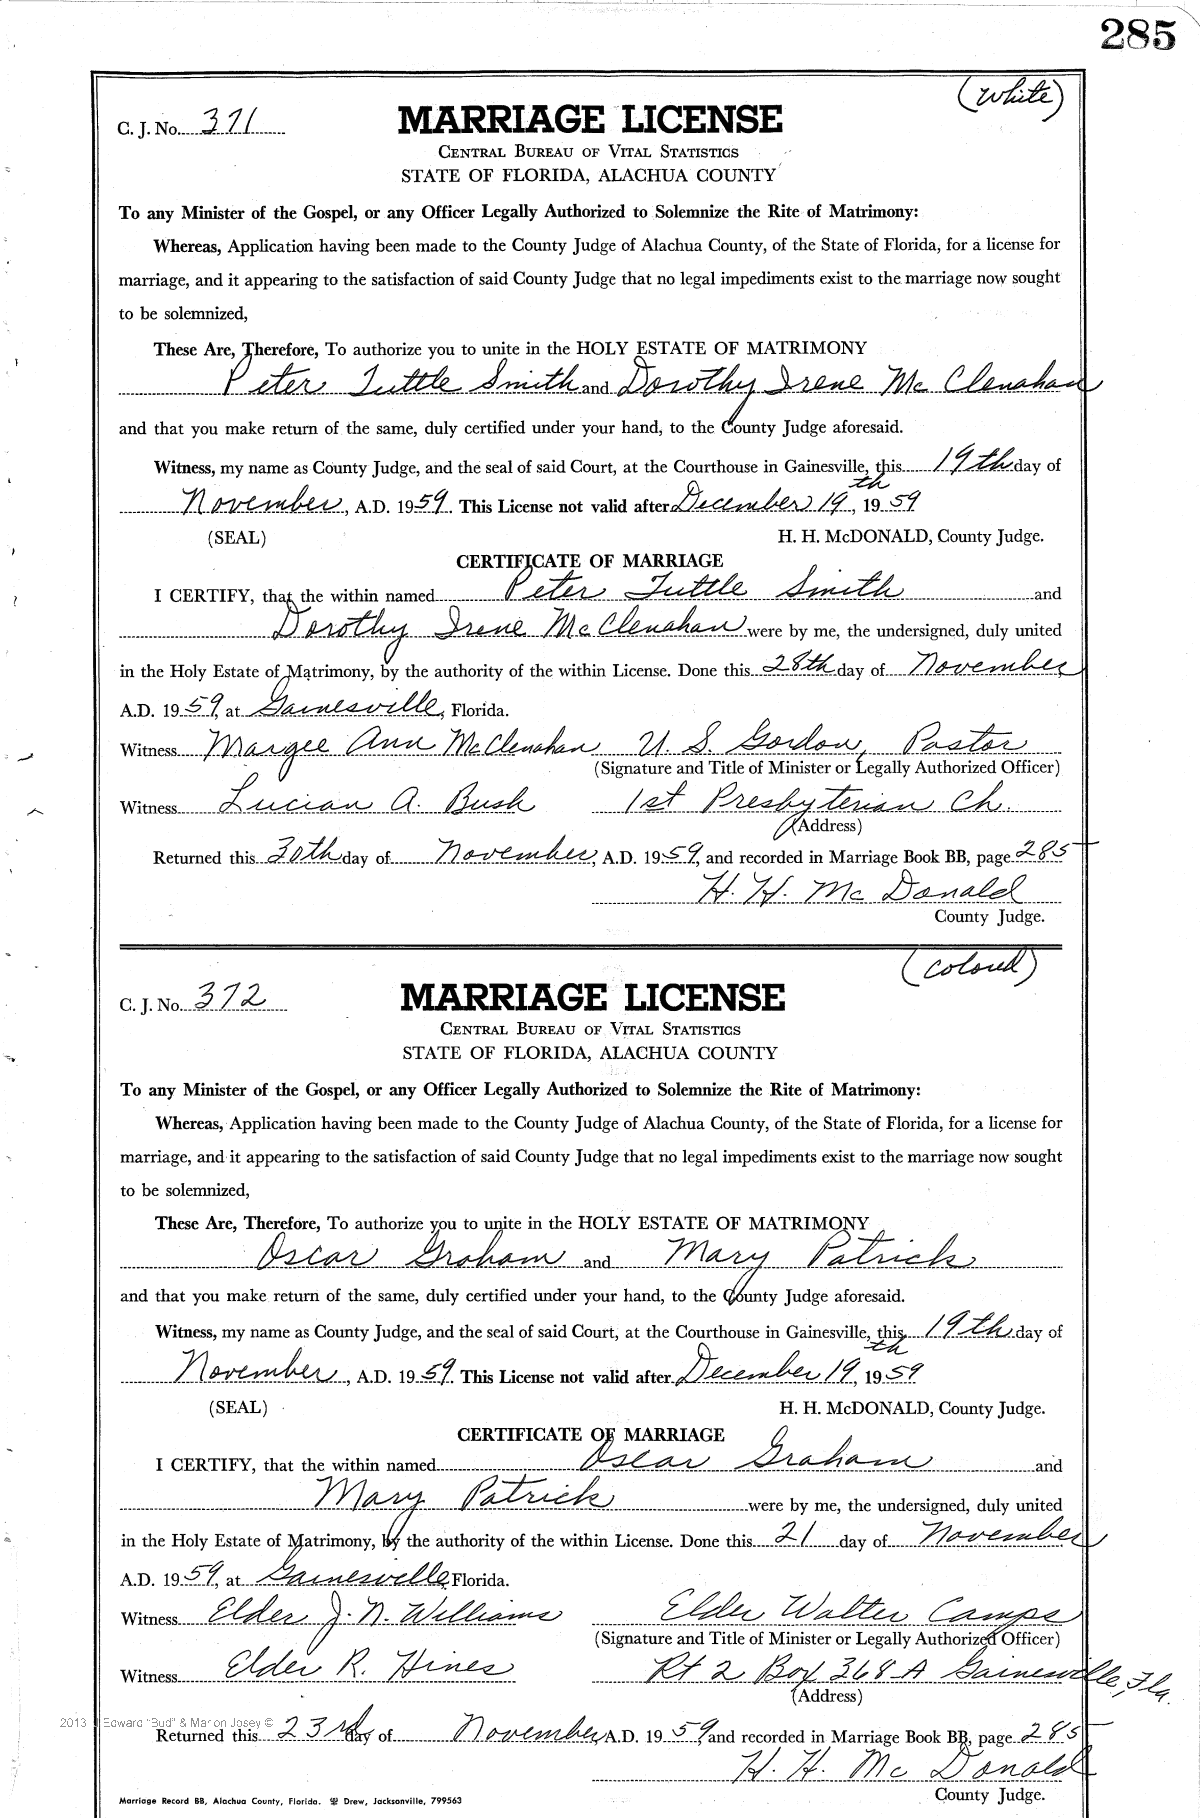 285
(White)
C. J. No. 371
MARRIAGE LICENSE
CENTRAL BUREAU OF VITAL STATISTICS
STATE OF FLORIDA, ALACHUA COUNTY
To any Minister of the Gospel, or any Officer Legally Authorized to Solemnize the Rite of Matrimony:
Whereas, Application having been made to the County Judge of Alachua County, of the State of Florida, for a license for
marriage, and it appearing to the satisfaction of said County Judge that no legal impediments exist to the marriage now sought
to be solemnized,
These Are, Therefore, To authorize you to unite in the HOLY ESTATE OF MATRIMONY
Peter Tuttle Smith and Dorothy Irene McClenahan
and that you make return of the same, duly certified under your hand, to the County Judge aforesaid.
Witness, my name as County Judge, and the seal of said Court, at the Courthouse in Gainesville, this 19th day of
November, A.D. 1959. This License not valid after December 19th, 1959
(SEAL) H. H. McDONALD, County Judge.
CERTIFICATE OF MARRIAGE
I CERTIFY, that the within named Peter Tuttle Smith and
Dorothy Irene McClenahan were by me, the undersigned, duly united
in the Holy Estate of Matrimony, by the authority of the within License. Done this 28th day of November
A.D. 1959, at Gainesville, Florida.
Witness Margee Ann McClenahan U. S. Gordon, Pastor
(Signature and Title of Minister or Legally Authorized Officer)
Witness Lucian A. Bush 1st Presbyterian Ch.
(Address)
Returned this 30th day of November, A.D. 1959, and recorded in Marriage Book BB, page 285
H. H. McDonald
County Judge.
(Colored)
C. J. No. 372
MARRIAGE LICENSE
CENTRAL BUREAU OF VITAL STATISTICS
STATE OF FLORIDA, ALACHUA COUNTY
To any Minister of the Gospel, or any Officer Legally Authorized to Solemnize the Rite of Matrimony:
Whereas, Application having been made to the County Judge of Alachua County, of the State of Florida, for a license for
marriage, and it appearing to the satisfaction of said County Judge that no legal impediments exist to the marriage now sought
to be solemnized,
These Are, Therefore, To authorize you to unite in the HOLY ESTATE OF MATRIMONY
Oscar Graham and Mary Patrick
and that you make return of the same, duly certified under your hand, to the County Judge aforesaid.
Witness, my name as County Judge, and the seal of said Court, at the Courthouse in Gainesville, this 19th day of
November, A.D. 1959. This License not valid after December 19th, 1959
(SEAL) H. H. McDONALD, County Judge.
CERTIFICATE OF MARRIAGE
I CERTIFY, that the within named Oscar Graham and
Mary Patrick were by me, the undersigned, duly united
in the Holy Estate of Matrimony, by the authority of the within License. Done this 21 day of November
A.D. 1959, at Gainesville, Florida.
Witness Elder J. N. Williams Elder Walter Camps
(Signature and Title of Minister or Legally Authorized Officer)
Witness Elder R. Hines Rt 2 Box 368-A Gainesville, Fla.
(Address)
2013 J Edward "Bud" & Marion Josey ©
Returned this 23rd day of November, A.D. 1959, and recorded in Marriage Book BB, page 285
H. H. McDonald
County Judge.
Marriage Record BB, Alachua County, Florida. Drew, Jacksonville, 799563